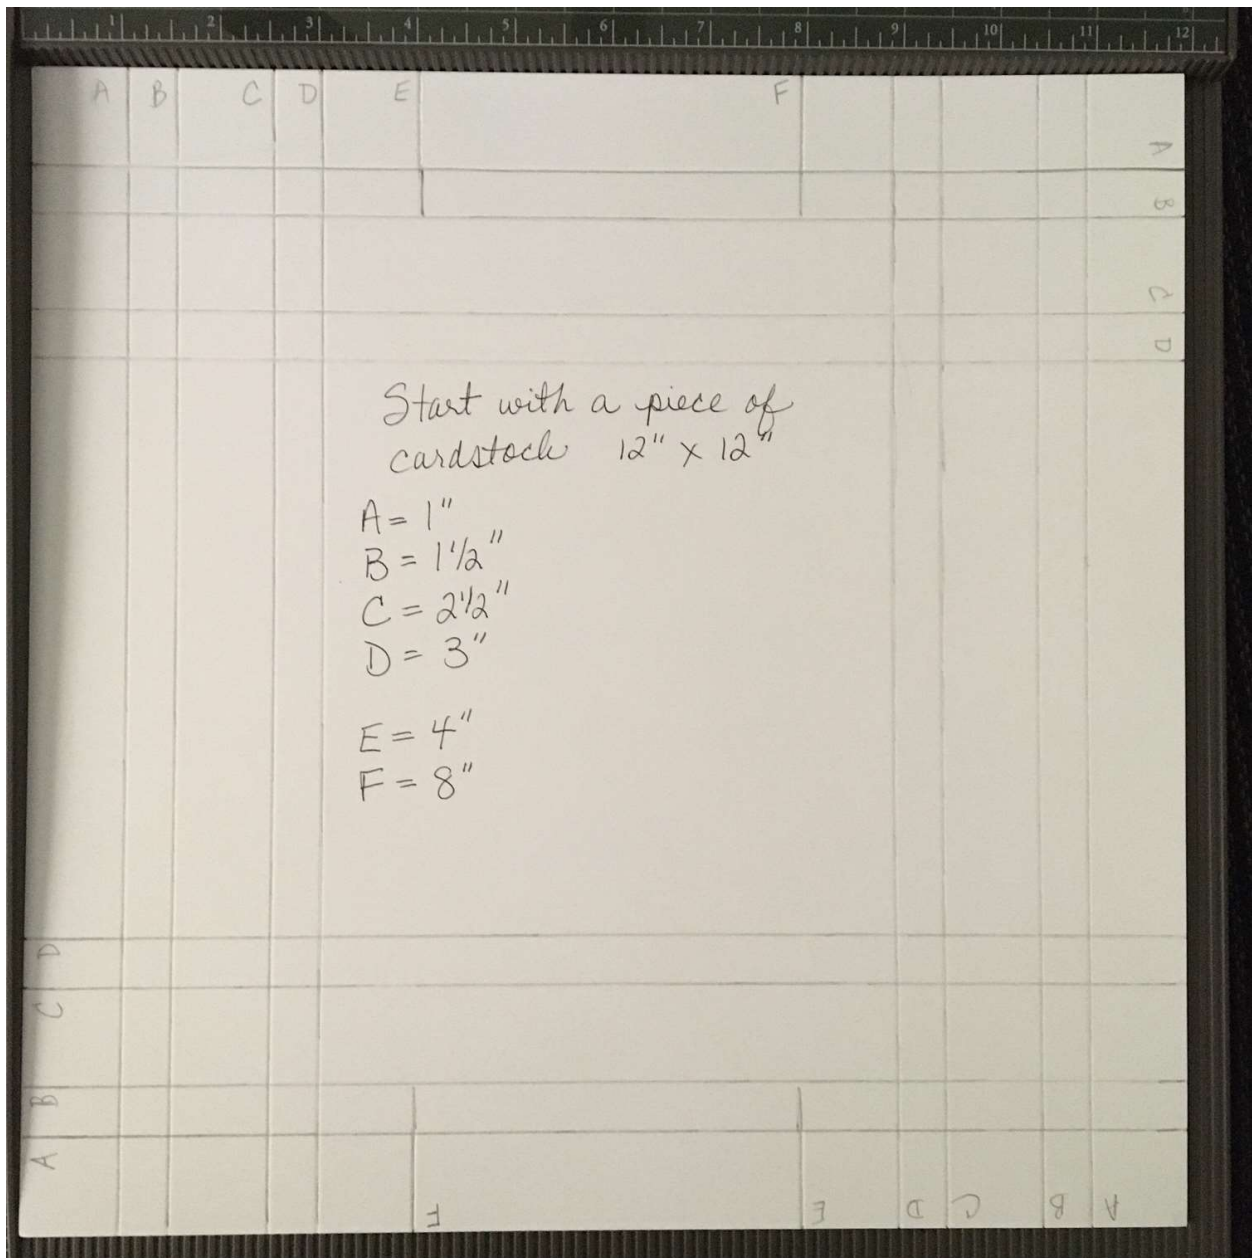 1 2 3 4 5 6 7 8 9 10 11 12
A B C D E F
A
B
C
D
Start with a piece of
cardstock 12" x 12"
A = 1"
B = 1 1/2"
C = 2 1/2"
D = 3"
E = 4"
F = 8"
D
C
B
A
F E D C B A